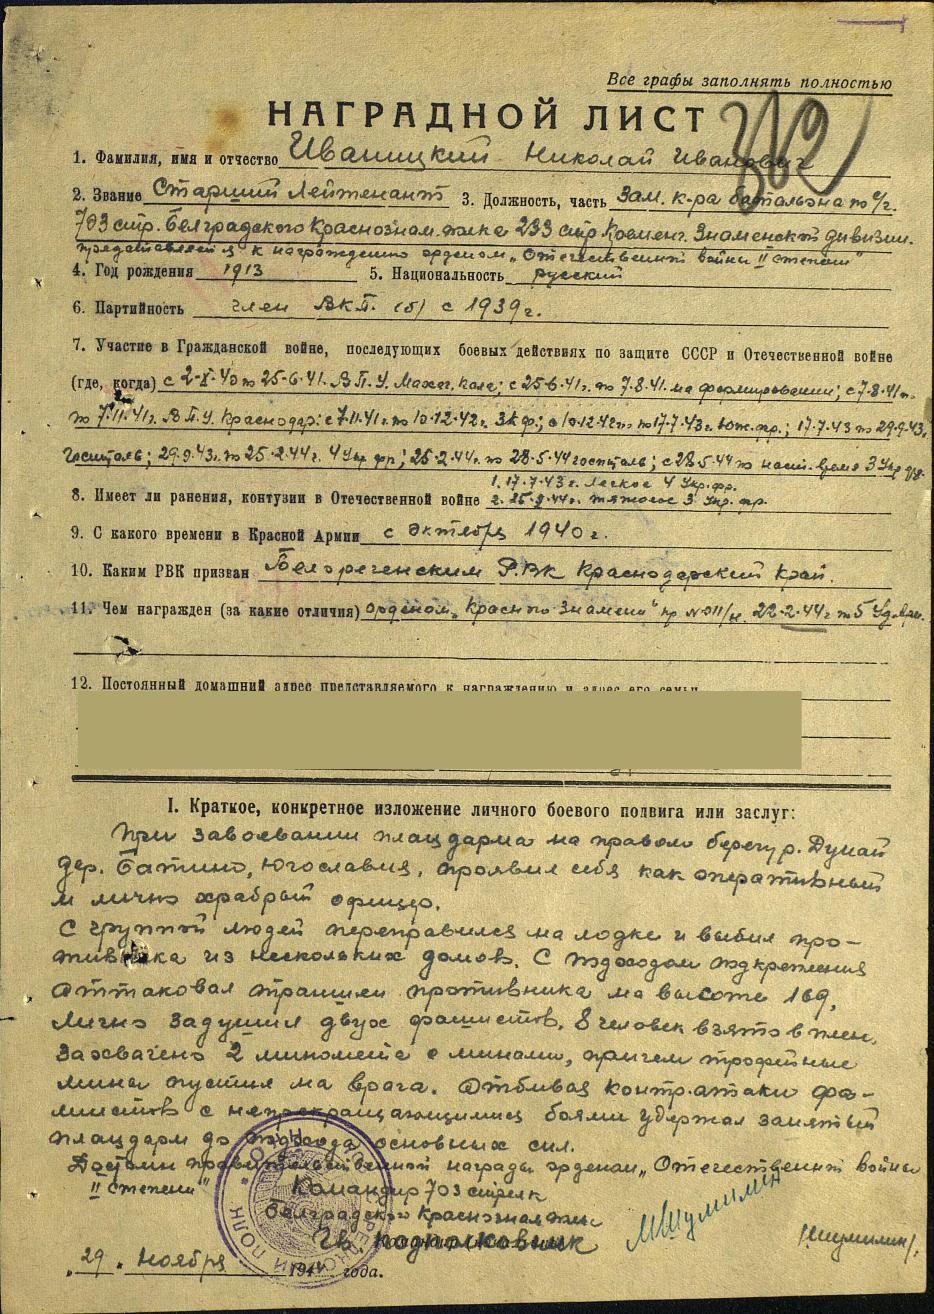 Все графы заполнять полностью
НАГРАДНОЙ ЛИСТ
1. Фамилия, имя и отчество Иваницкий Николай Иванович
2. Звание Старший Лейтенант 3. Должность, часть Зам. к-ра батальона по п/ч.
703 стр. Белградского Краснознам. полка 233 стр. Кременч. Знаменской дивизии.
представляется к награждению орденом „Отечественной войны II степени"
4. Год рождения 1913 5. Национальность русский
6. Партийность член ВКП (б) с 1939 г.
7. Участие в Гражданской войне, последующих боевых действиях по защите СССР и Отечественной войне
(где, когда) с 2-X-40 по 25-6-41. В.П.У. Махач, Кала; с 25-6-41г. по 7.8.41. на формировании; с 7-8-41г.
по 7.11.41г. В.П.У. Краснодар; с 7.11.41г. по 10.12.42г. Зк ф.; с 10.12.42г. по 17.7.43г. Юж. фр.; 17.7.43 по 29.9.43г.
Госпиталь; 29.9.43г. по 25.2.44г. 4 Укр фр; 25.2.44г. по 28.5.44 госпталь; с 28.5.44 по наст. время 3 Укр фр.
1. 17.7.43 г. Легкое 4 Укр. фр.
8. Имеет ли ранения, контузии в Отечественной войне 2. 25.2.44г. тяжолое 3 Укр. фр.
9. С какого времени в Красной Армии с октября 1940 г.
10. Каким РВК призван Белореченским РВК Краснодарский край.
11. Чем награжден (за какие отличия) орденом „Красного Знамени" пр №011/н. 22.2.44г по 5 Уд. арм.
12. Постоянный домашний адрес представляемого к награждению и адрес его семьи
I. Краткое, конкретное изложение личного боевого подвига или заслуг:
При завоевании плацдарма на правом берегу р. Дунай
дер. Батино, Югославия, проявил себя как оперативный
и лично храбрый офицер.
С группой людей переправился на лодке и выбил про-
тивника из нескольких домов. С подходом подкрепления
аттаковал траншеи противника на высоте 169,
Лично задушил двух фашистов, 8 человек взято в плен.
Захвачено 2 миномета с минами, причем трофейные
мины пустил на врага. Отбивая контратаки фа-
шистов с непрекращающимися боями удержал занятый
плацдарм до подхода основных сил.
Достоин правительственной награды орденом „Отечественной войны
II степени"
Командир 703 стрелк
Белградского Краснознам полк
Гв. подполковник Шумилин /Шумилин/.
„29" Ноября 194 года.